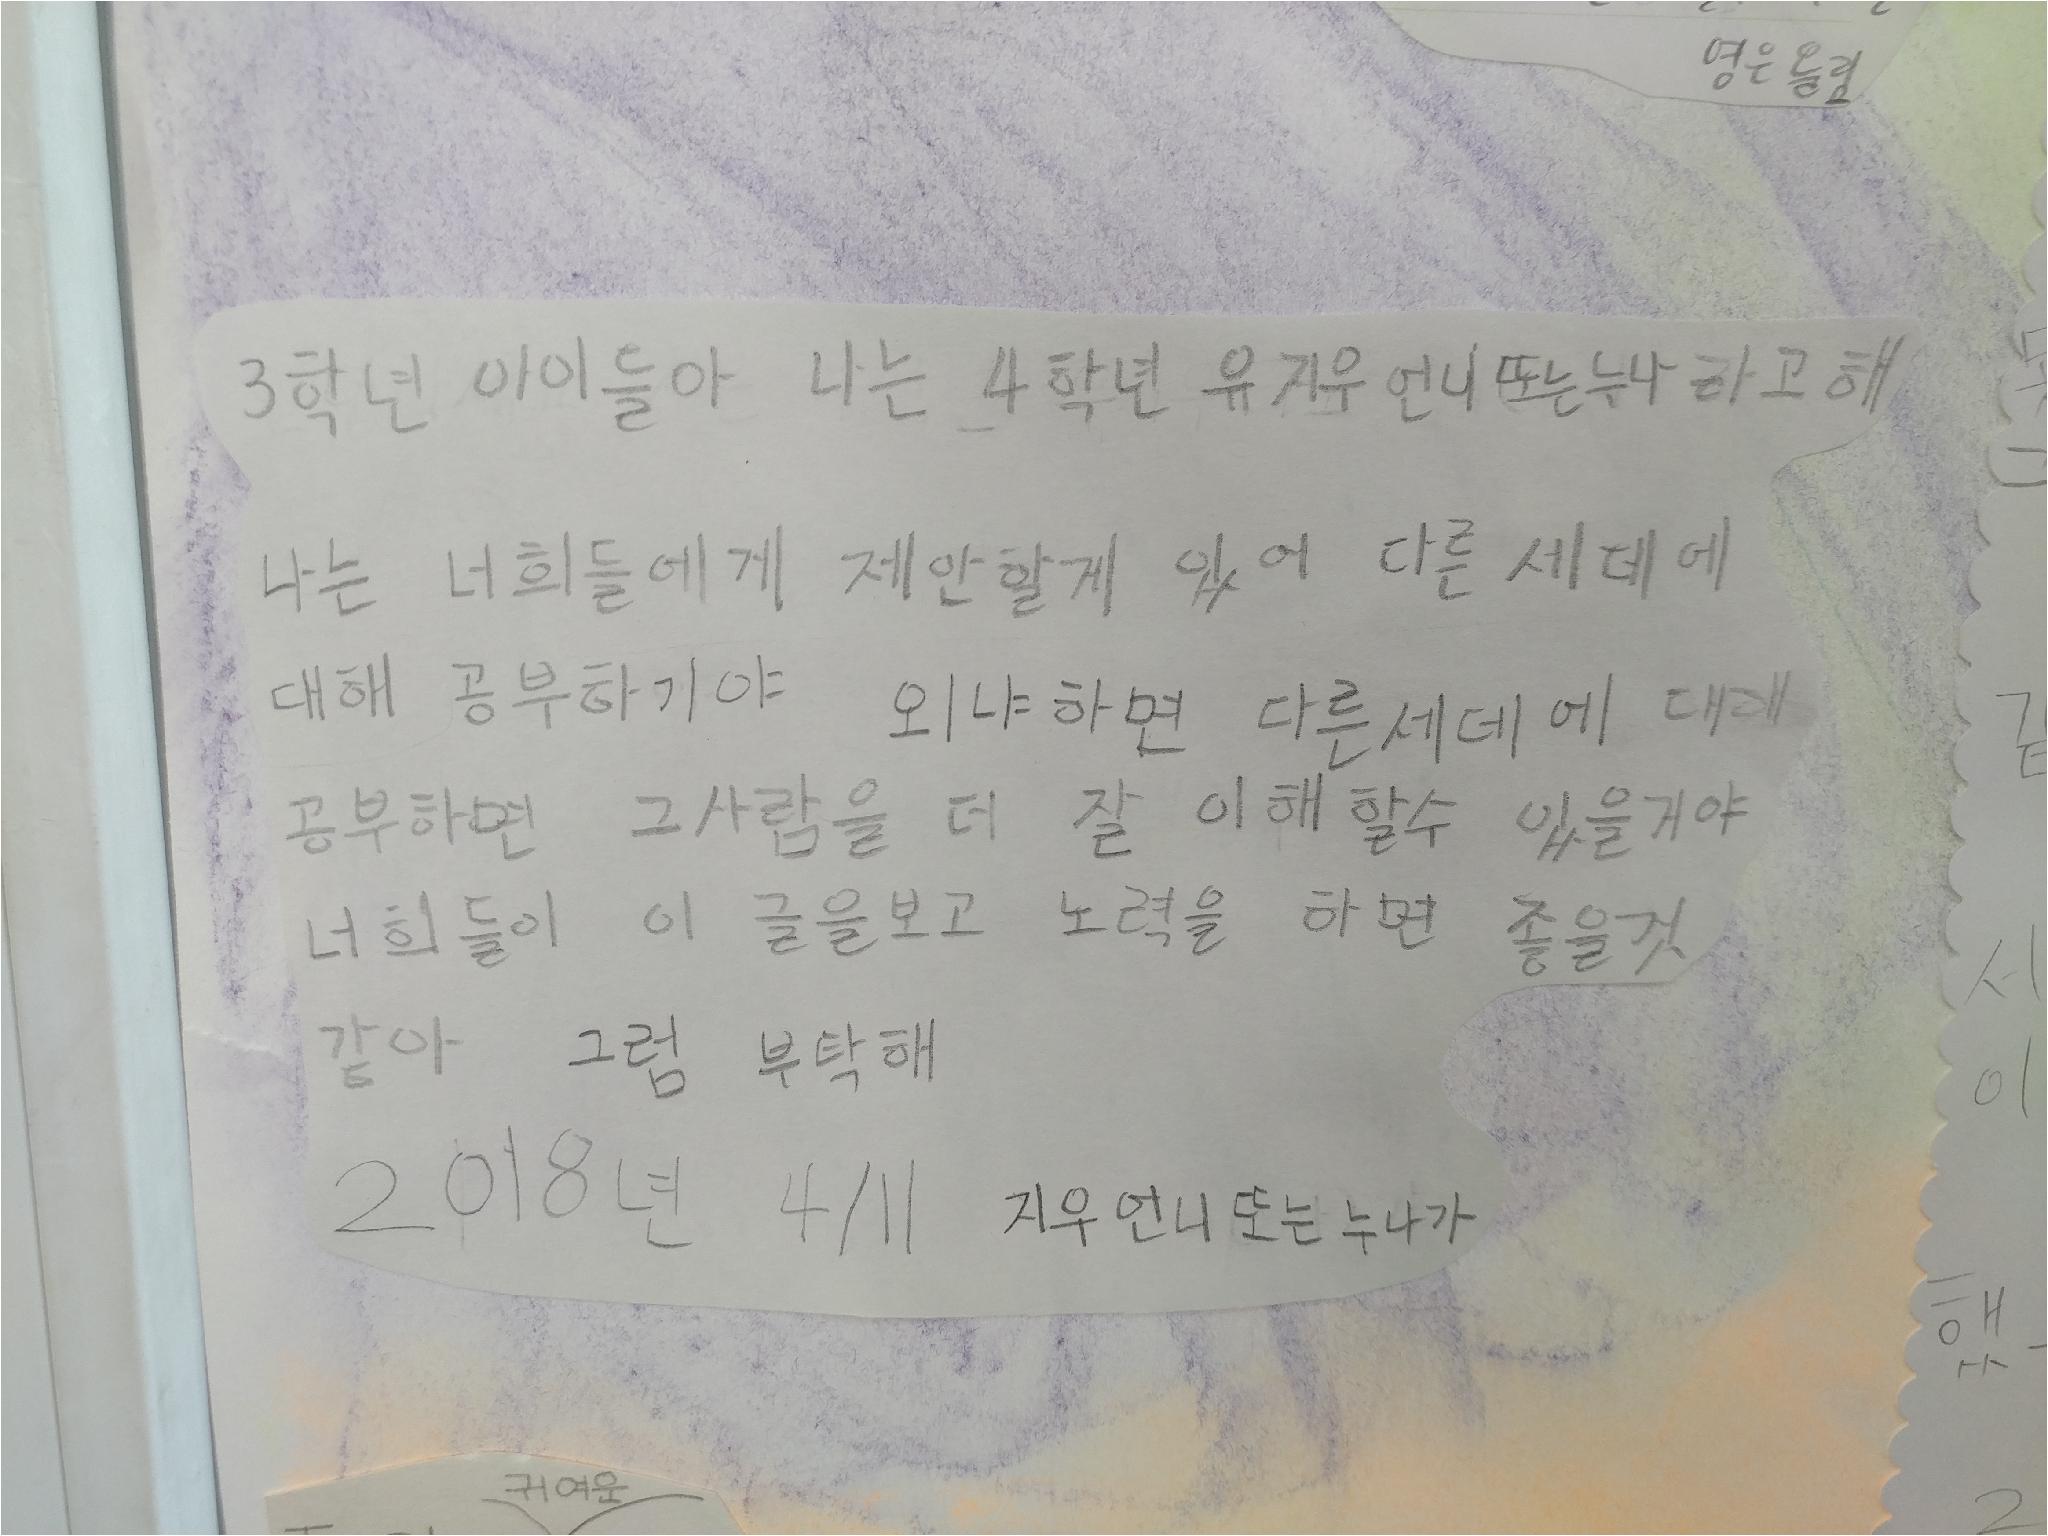 영은 올림
3학년 아이들아 나는 4학년 유지우 언니 또는 누나 라고 해
나는 너희들에게 제안할게 있어 다른 세데에
대해 공부하기야 외냐하면 다른세데에 대해
공부하면 그사람을 더 잘 이해할수 있을거야
너희들이 이 글을보고 노력을 하면 좋을것
같아 그럼 부탁해
2018년 4/11 지우 언니 또는 누나가
귀여운